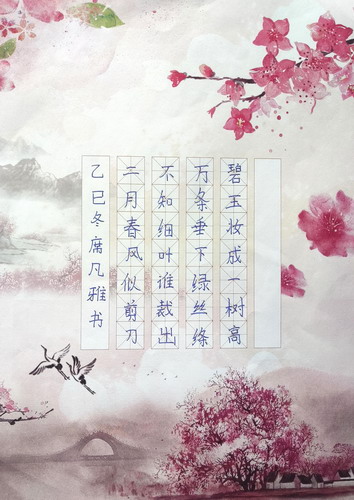 碧玉妆成一树高
万条垂下绿丝绦
不知细叶谁裁出
二月春风似剪刀
乙巳冬席凡雅书